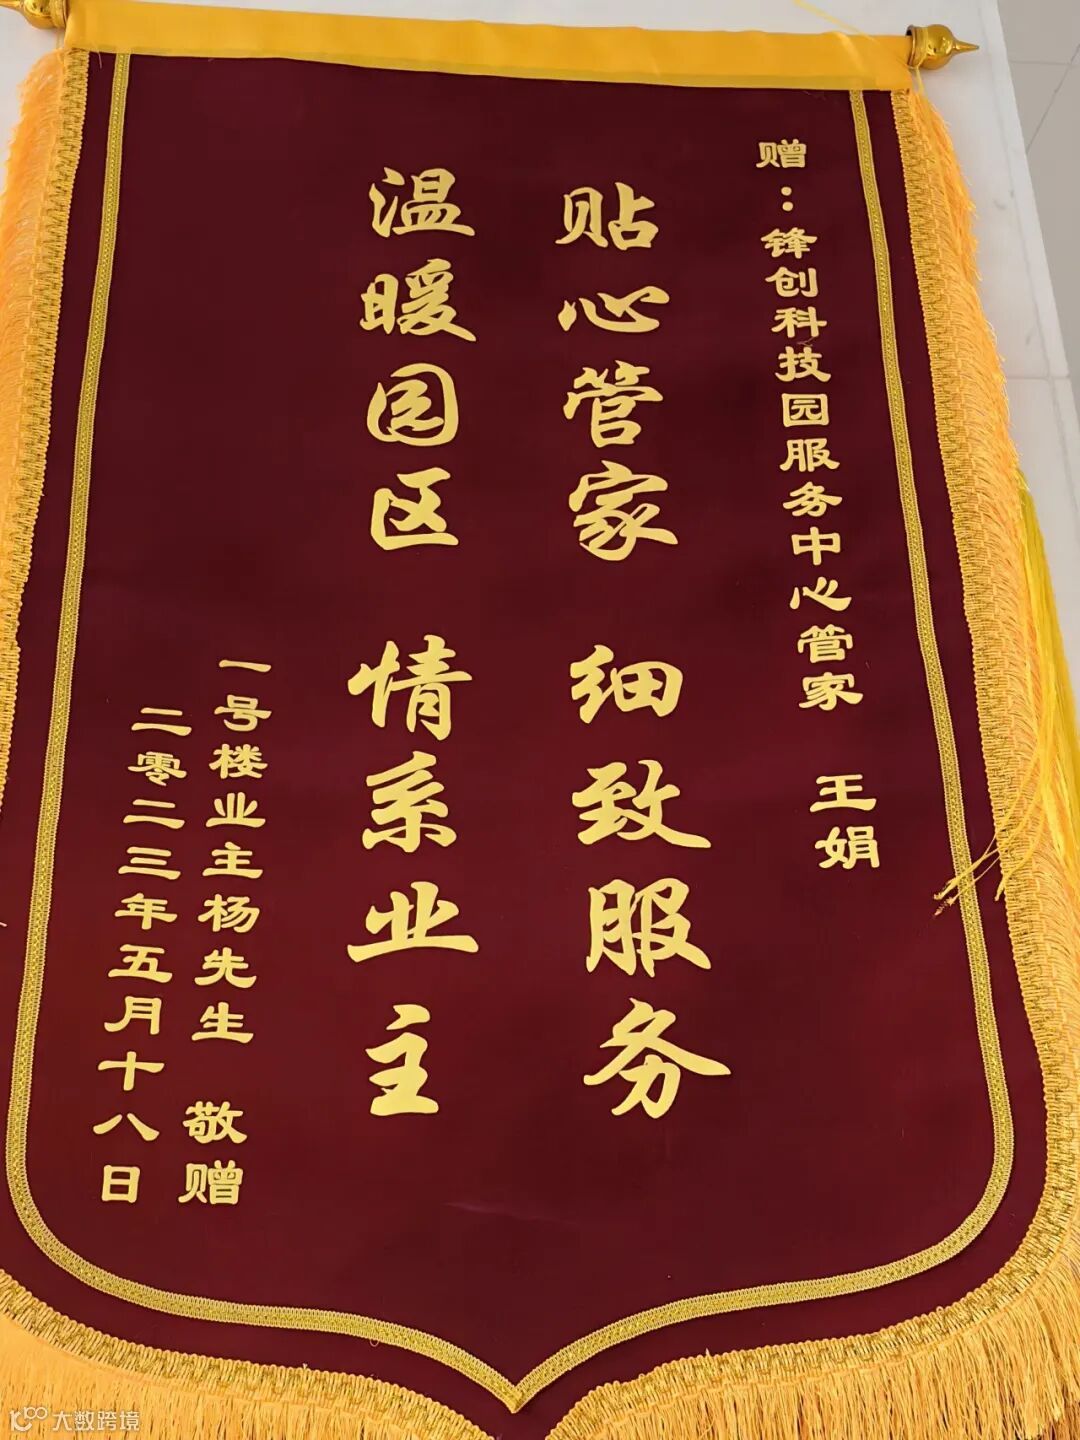 赠：锋创科技园服务中心管家 王娟
贴心管家 细致服务
温暖园区 情系业主
一号楼业主杨先生 敬赠
二零二三年五月十八日
大数跨境